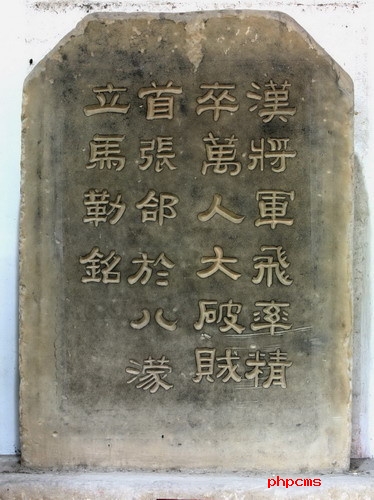 漢將軍飛率精
卒萬人大破賊
首張郃於八濛
立馬勒銘
phpcms